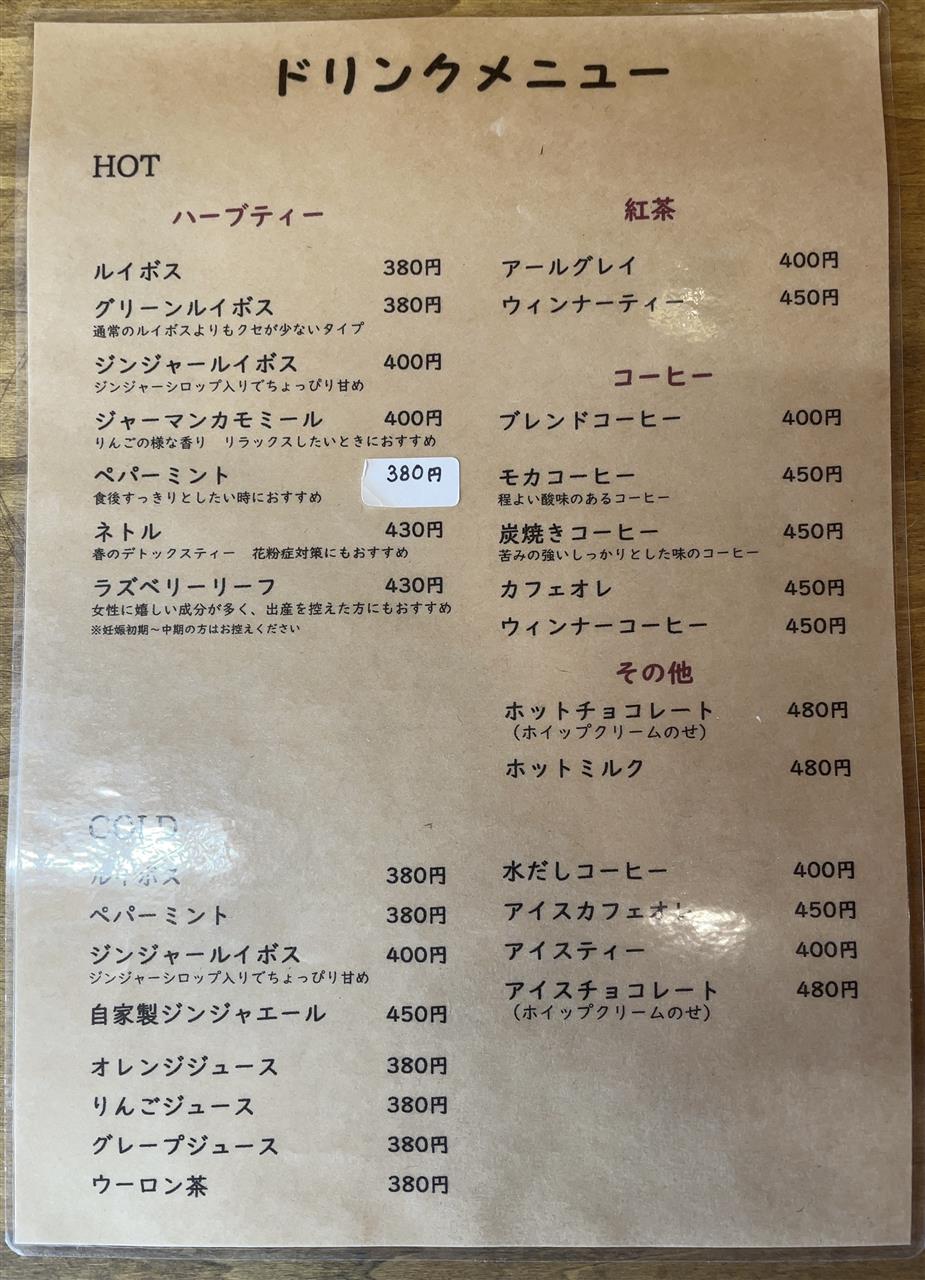 ドリンクメニュー
HOT
ハーブティー
ルイボス 380円
グリーンルイボス 380円
通常のルイボスよりもクセが少ないタイプ
ジンジャールイボス 400円
ジンジャーシロップ入りでちょっぴり甘め
ジャーマンカモミール 400円
りんごの様な香り　リラックスしたいときにおすすめ
ペパーミント 380円
食後すっきりとしたい時におすすめ
ネトル 430円
春のデトックスティー　花粉症対策にもおすすめ
ラズベリーリーフ 430円
女性に嬉しい成分が多く、出産を控えた方にもおすすめ
※妊娠初期～中期の方はお控えください
紅茶
アールグレイ 400円
ウィンナーティー 450円
コーヒー
ブレンドコーヒー 400円
モカコーヒー 450円
程よい酸味のあるコーヒー
炭焼きコーヒー 450円
苦みの強いしっかりとした味のコーヒー
カフェオレ 450円
ウィンナーコーヒー 450円
その他
ホットチョコレート 480円
（ホイップクリームのせ）
ホットミルク 480円
COLD
ルイボス 380円
ペパーミント 380円
ジンジャールイボス 400円
ジンジャーシロップ入りでちょっぴり甘め
自家製ジンジャエール 450円
オレンジジュース 380円
りんごジュース 380円
グレープジュース 380円
ウーロン茶 380円
水だしコーヒー 400円
アイスカフェオレ 450円
アイスティー 400円
アイスチョコレート 480円
（ホイップクリームのせ）